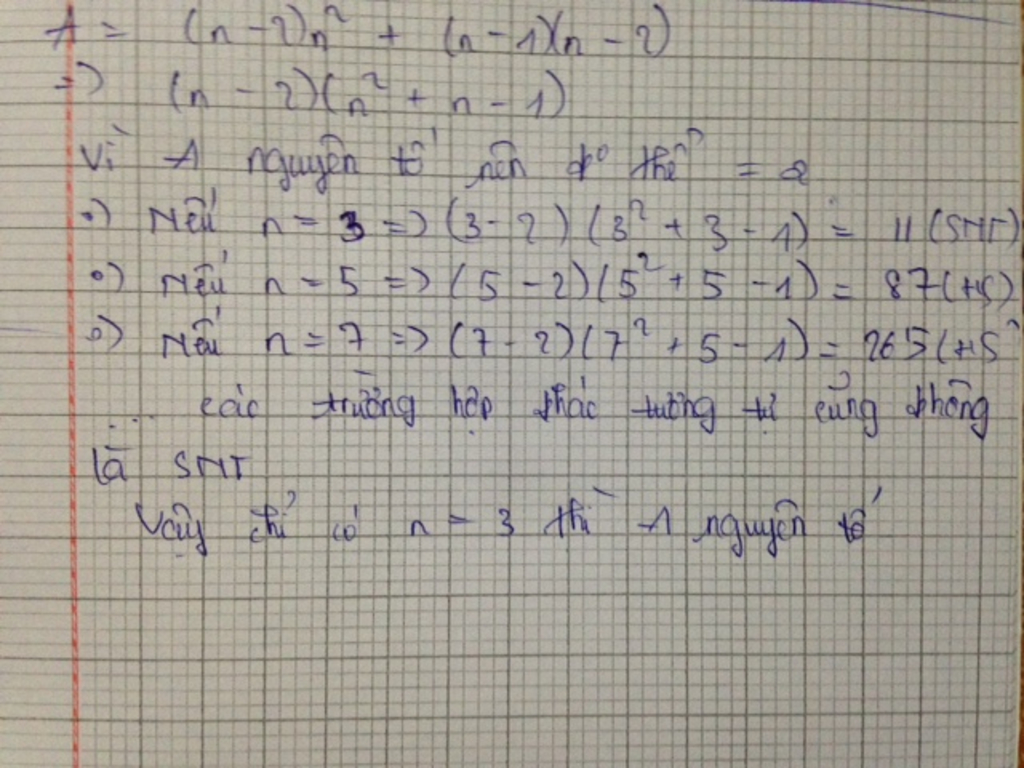 A = (n - 2)n² + (n - 1)(n - 2)
=> (n - 2)(n² + n - 1)
Vì A nguyên tố nên ko thể = 2
•) Nếu n = 3 => (3 - 2) (3² + 3 - 1) = 11 (SNT)
•) Nếu n = 5 => (5 - 2)(5² + 5 - 1) = 87 (HS)
•) Nếu n = 7 => (7 - 2)(7² + 5 - 1) = 265 (HS
... các trường hợp khác tương tự củng không
là SNT
Vậy chỉ có n = 3 thì A nguyên tố